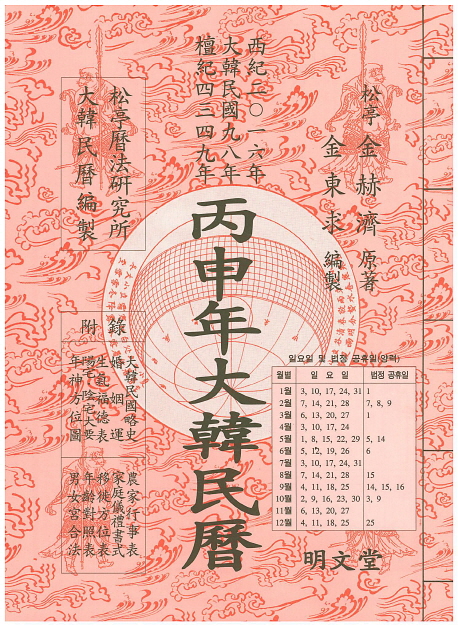 西紀二〇一六年
大韓民國九八年
檀紀四三四九年
松亭 金赫濟 原著
金東求 編製
松亭曆法硏究所
大韓民曆編製
丙申年大韓民曆
附錄
大韓民國略史
婚姻運
生氣福德表
陽宅陰宅大要
年神方位圖
農家行事表
家庭儀禮書式
移徙方位表
年齡對照表
男女宮合法
일요일 및 법정 공휴일(양력)
월별 일요일 법정 공휴일
1월 3, 10, 17, 24, 31 1
2월 7, 14, 21, 28 7, 8, 9
3월 6, 13, 20, 27 1
4월 3, 10, 17, 24
5월 1, 8, 15, 22, 29 5, 14
6월 5, 12, 19, 26 6
7월 3, 10, 17, 24, 31
8월 7, 14, 21, 28 15
9월 4, 11, 18, 25 14, 15, 16
10월 2, 9, 16, 23, 30 3, 9
11월 6, 13, 20, 27
12월 4, 11, 18, 25 25
明文堂